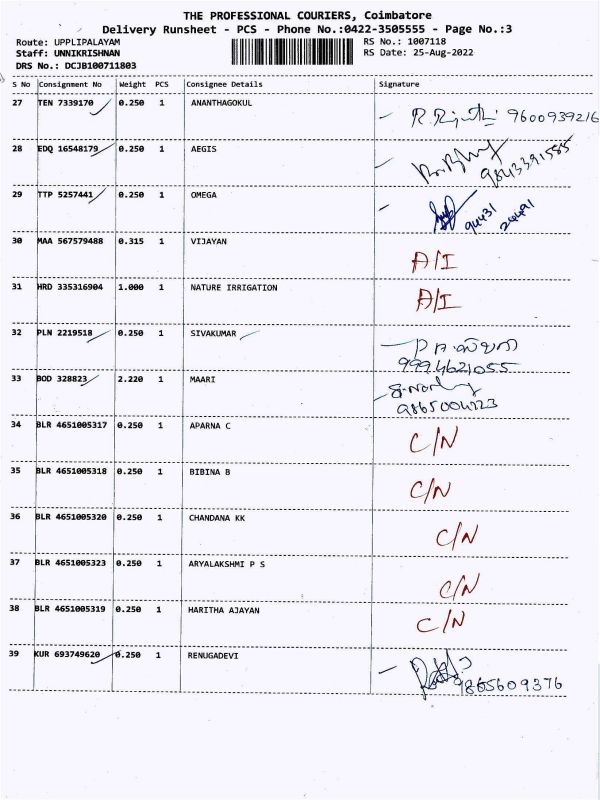 THE PROFESSIONAL COURIERS, Coimbatore
Delivery Runsheet - PCS - Phone No.:0422-3505555 - Page No.:3
Route: UPPLIPALAYAM RS No.: 1007118
Staff: UNNIKRISHNAN RS Date: 25-Aug-2022
DRS No.: DCJB100711803
S No Consignment No Weight PCS Consignee Details Signature
27 TEN 7339170 0.250 1 ANANTHAGOKUL 9600939216
28 EDQ 16548179 0.250 1 AEGIS 9843391585
29 TTP 5257441 0.250 1 OMEGA 94431
24491
30 MAA 567579488 0.315 1 VIJAYAN A/I
31 HRD 335316904 1.000 1 NATURE IRRIGATION A/I
32 PLN 2219518 0.250 1 SIVAKUMAR
9994621055
33 BOD 328823 2.220 1 MAARI
9865004723
34 BLR 4651005317 0.250 1 APARNA C C/N
35 BLR 4651005318 0.250 1 BIBINA B C/N
36 BLR 4651005320 0.250 1 CHANDANA KK C/N
37 BLR 4651005323 0.250 1 ARYALAKSHMI P S C/N
38 BLR 4651005319 0.250 1 HARITHA AJAYAN C/N
39 KUR 693749620 0.250 1 RENUGADEVI 9865609376